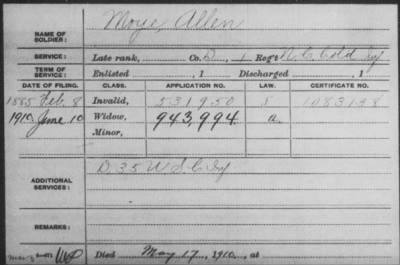 NAME OF SOLDIER: Moye, Allen
SERVICE: Late rank, Co. D, 1 Reg't N.C. Cold Inf
TERM OF SERVICE: Enlisted , 1 Discharged , 1
DATE OF FILING. CLASS. APPLICATION NO. LAW. CERTIFICATE NO.
1885 Feb. 8 Invalid, 531950 1083138
1910 June 10 Widow, 943,994 a.
Minor,
ADDITIONAL SERVICES: D 35 U S C Inf
REMARKS:
Died May 17, 1910, at